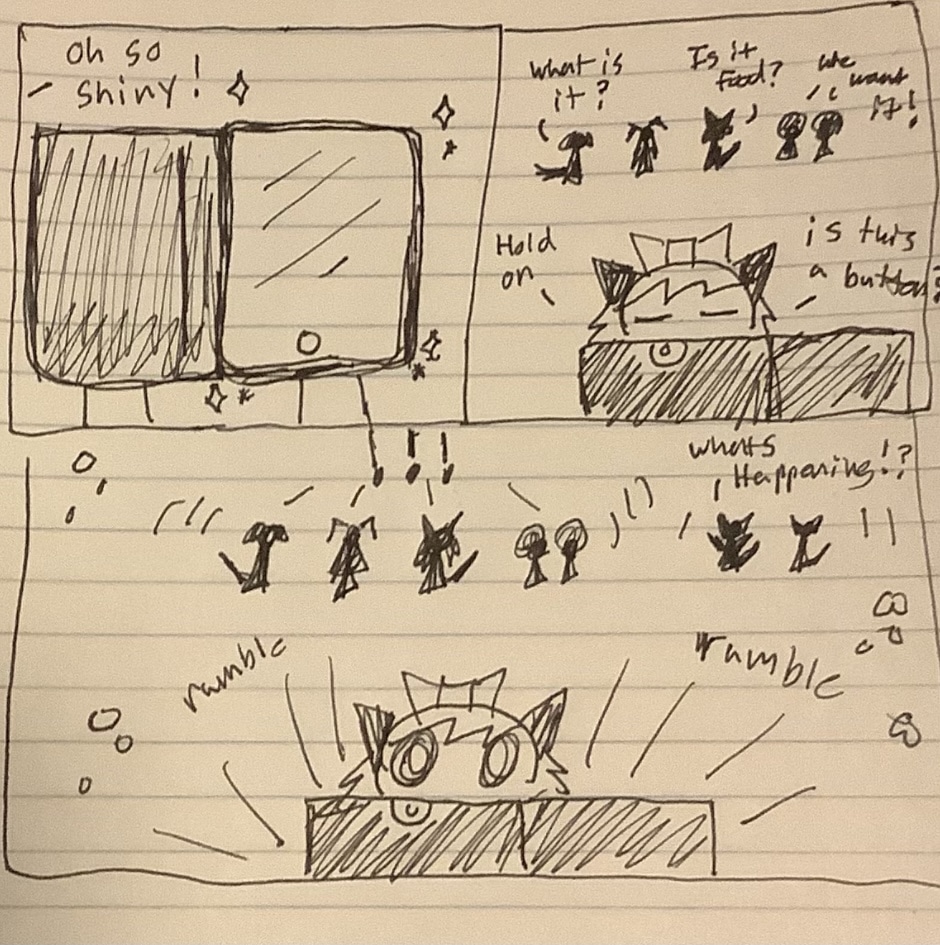 Oh so
shiny!
what is
it?
Is it
Food?
we
want
it!
Hold
on
is this
a button?
! ! !
whats
Happening!?
rumble
rumble